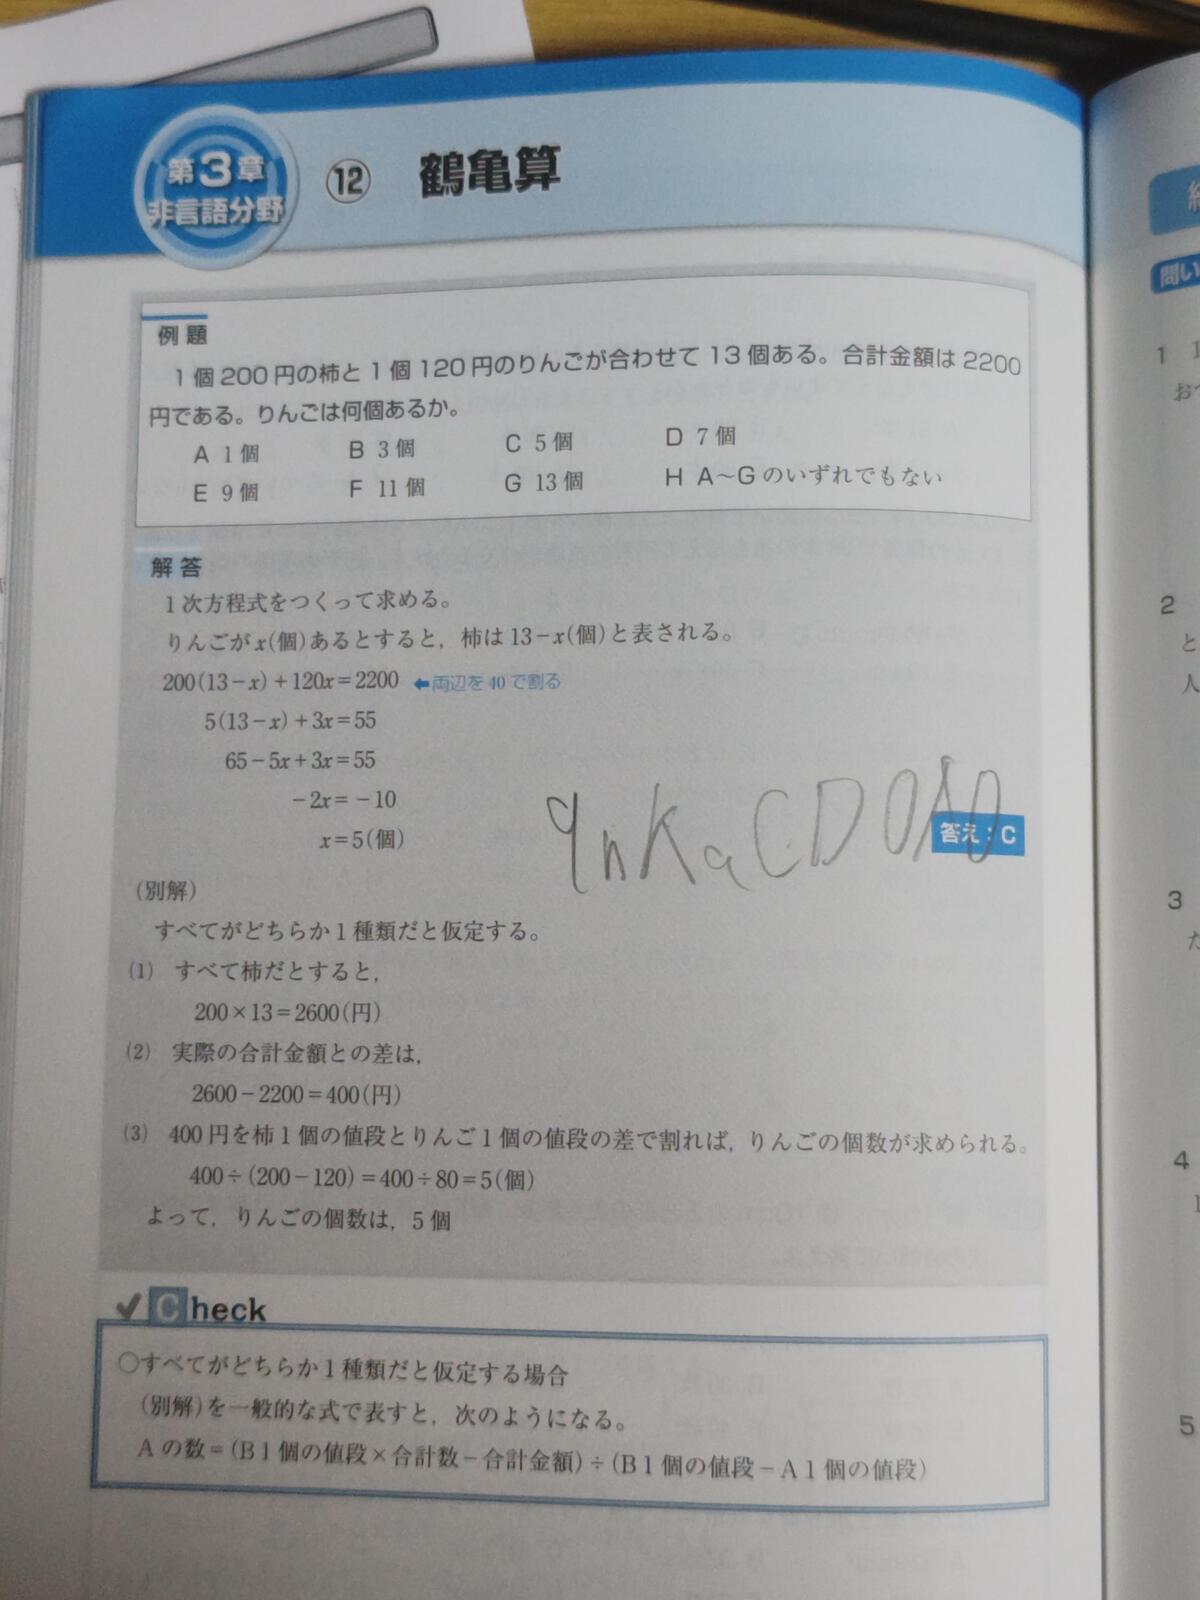 第3章
非言語分野
⑫ 鶴亀算
例題
1個200円の柿と1個120円のりんごが合わせて13個ある。合計金額は2200
円である。りんごは何個あるか。
A 1個 B 3個 C 5個 D 7個
E 9個 F 11個 G 13個 H A～Gのいずれでもない
解答
1次方程式をつくって求める。
りんごがx(個)あるとすると，柿は13−x(個)と表される。
200(13−x)+120x=2200 ←両辺を40で割る
5(13−x)+3x=55
65−5x+3x=55
−2x=−10
x=5(個)
答え：C
(別解)
すべてがどちらか1種類だと仮定する。
(1) すべて柿だとすると，
200×13=2600(円)
(2) 実際の合計金額との差は，
2600−2200=400(円)
(3) 400円を柿1個の値段とりんご1個の値段の差で割れば，りんごの個数が求められる。
400÷(200−120)=400÷80=5(個)
よって，りんごの個数は，5個
Check
○すべてがどちらか1種類だと仮定する場合
(別解)を一般的な式で表すと，次のようになる。
Aの数=(B1個の値段×合計数−合計金額)÷(B1個の値段−A1個の値段)
問い
1
2
と
人
3
4
5